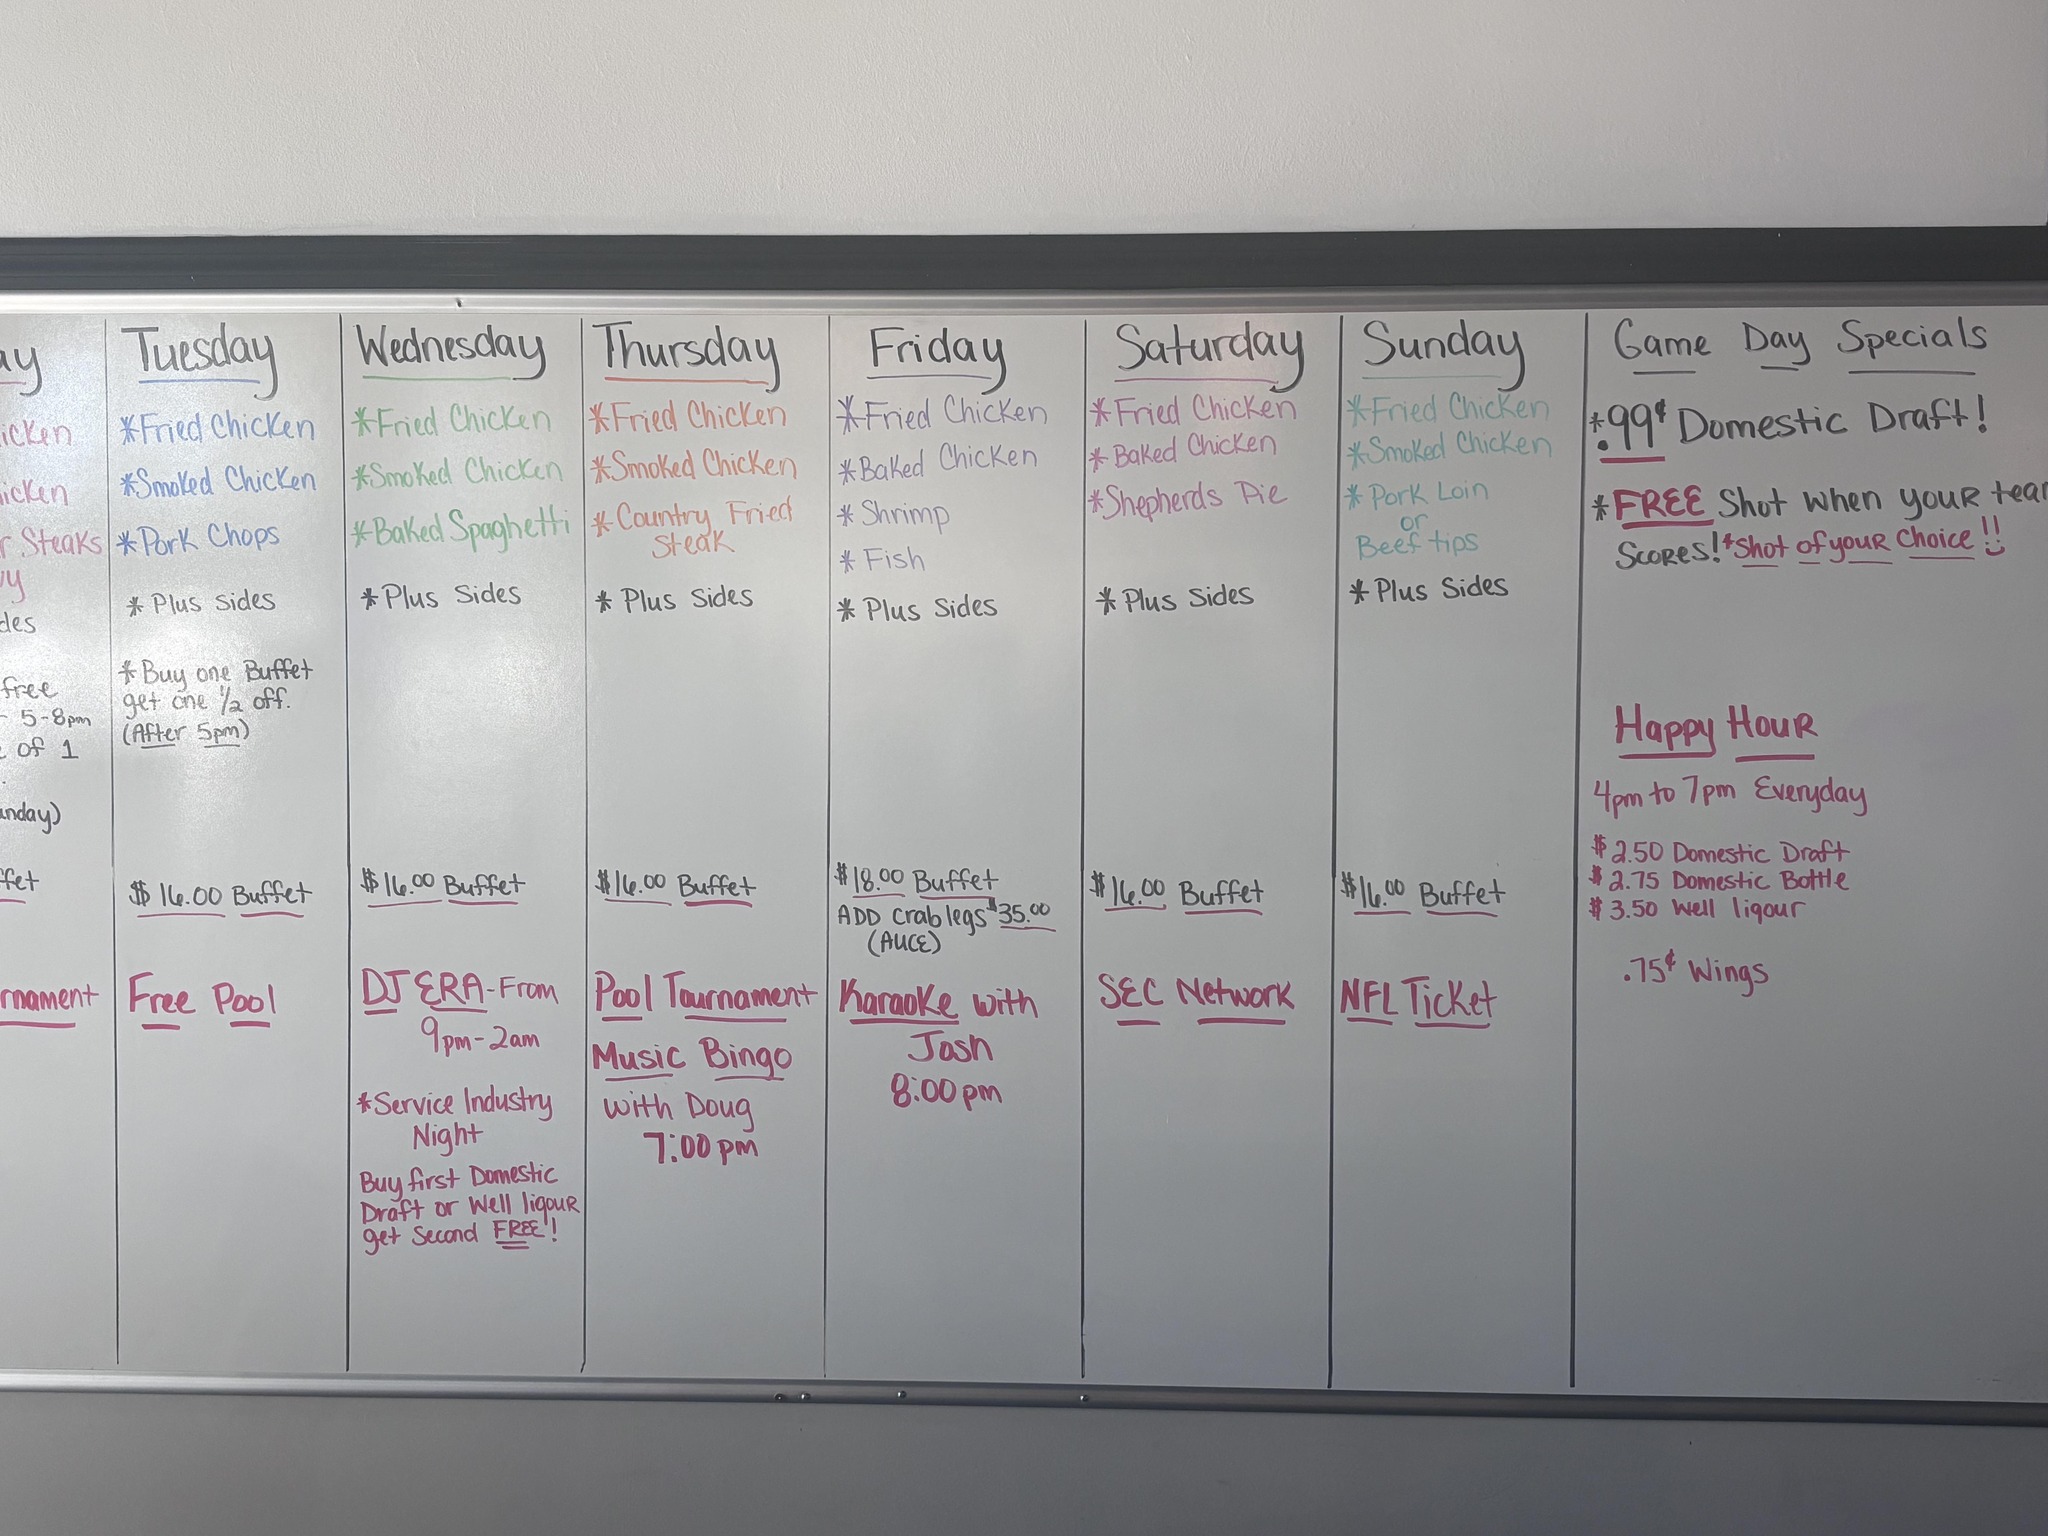 ay
icken
icken
r. Steaks
vy
des
free
- 5-8pm
of 1
unday)
ffet
rnament
Tuesday
*Fried Chicken
*Smoked Chicken
*Pork Chops
*Plus Sides
*Buy one Buffet
get one 1/2 off.
(After 5pm)
$16.00 Buffet
Free Pool
Wednesday
*Fried Chicken
*Smoked Chicken
*Baked Spaghetti
*Plus Sides
$16.00 Buffet
DJ ERA-From
9pm-2am
*Service Industry
Night
Buy first Domestic
Draft or Well liqour
get Second FREE!
Thursday
*Fried Chicken
*Smoked Chicken
*Country Fried
Steak
*Plus Sides
$16.00 Buffet
Pool Tournament
Music Bingo
with Doug
7:00pm
Friday
*Fried Chicken
*Baked Chicken
*Shrimp
*Fish
*Plus Sides
$18.00 Buffet
ADD crab legs $35.00
(AUCE)
Karaoke with
Josh
8:00pm
Saturday
*Fried Chicken
*Baked Chicken
*Shepherds Pie
*Plus Sides
$16.00 Buffet
SEC Network
Sunday
*Fried Chicken
*Smoked Chicken
*Pork Loin
or
Beef tips
*Plus Sides
$16.00 Buffet
NFL Ticket
Game Day Specials
*.99¢ Domestic Draft!
*FREE Shot when your tear
Scores! *Shot of your Choice!!
Happy Hour
4pm to 7pm Everyday
$2.50 Domestic Draft
$2.75 Domestic Bottle
$3.50 Well liqour
.75¢ Wings